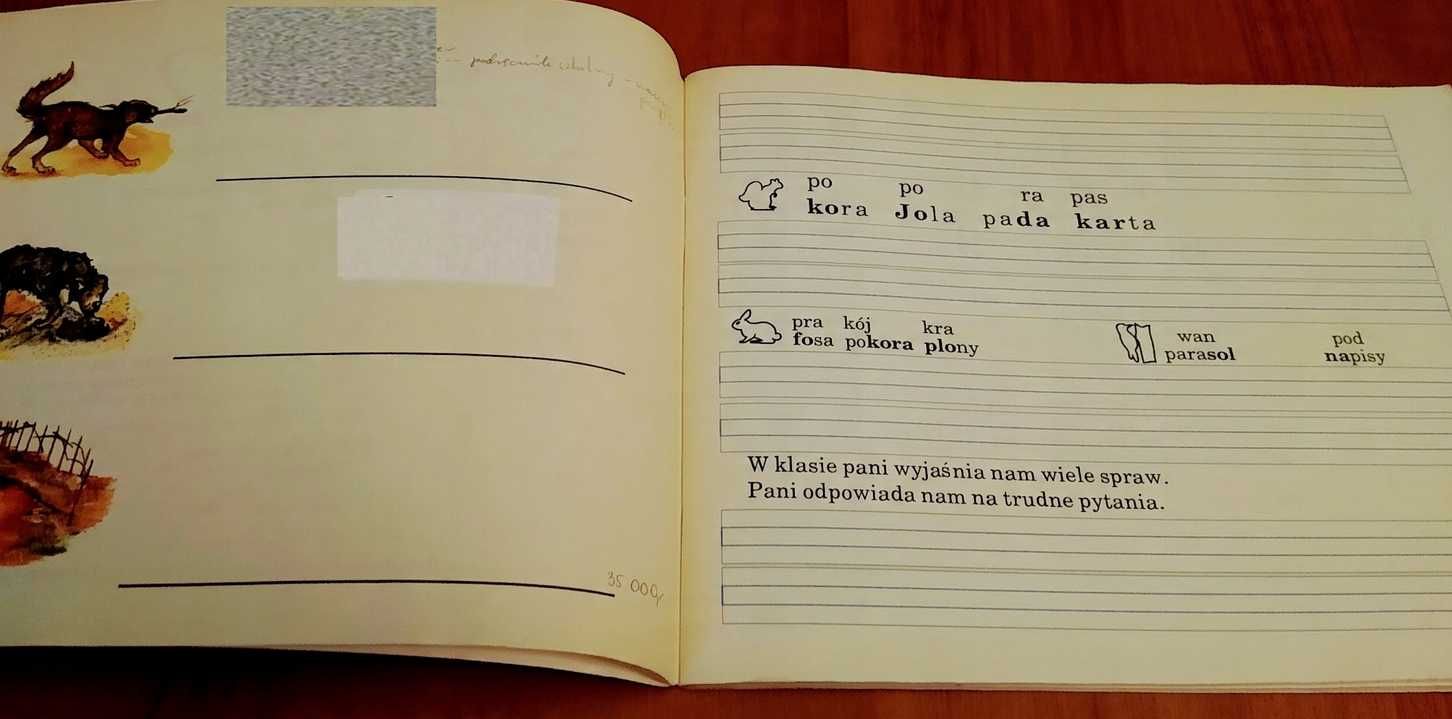 podręcznik szkolny
35 000,
po po ra pas
kora Jola pada karta
pra kój kra
fosa pokora plony
wan pod
parasol napisy
W klasie pani wyjaśnia nam wiele spraw.
Pani odpowiada nam na trudne pytania.